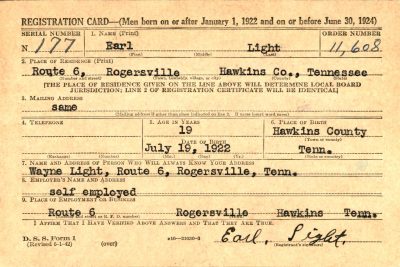 REGISTRATION CARD—(Men born on or after January 1, 1922 and on or before June 30, 1924)
SERIAL NUMBER 1. NAME (Print) ORDER NUMBER
N 177 Earl Light 11,608
(First) (Middle) (Last)
2. PLACE OF RESIDENCE (Print)
Route 6, Rogersville Hawkins Co., Tennessee
(Number and street) (Town, township, village, or city) (County) (State)
[THE PLACE OF RESIDENCE GIVEN ON THE LINE ABOVE WILL DETERMINE LOCAL BOARD
JURISDICTION; LINE 2 OF REGISTRATION CERTIFICATE WILL BE IDENTICAL]
3. MAILING ADDRESS
same
[Mailing address if other than place indicated on line 2. If same insert word same]
4. TELEPHONE 5. AGE IN YEARS 6. PLACE OF BIRTH
19 Hawkins County
DATE OF BIRTH (Town or county)
July 19, 1922 Tenn.
(Exchange) (Number) (Mo.) (Day) (Yr.) (State or country)
7. NAME AND ADDRESS OF PERSON WHO WILL ALWAYS KNOW YOUR ADDRESS
Wayne Light, Route 6, Rogersville, Tenn.
8. EMPLOYER'S NAME AND ADDRESS
self employed
9. PLACE OF EMPLOYMENT OR BUSINESS
Route 6 Rogersville Hawkins Tenn.
(Number and street or R. F. D. number) (Town) (County) (State)
I AFFIRM THAT I HAVE VERIFIED ABOVE ANSWERS AND THAT THEY ARE TRUE.
D. S. S. Form 1
(Revised 6-1-42) (over) Earl Light.
(Registrant's signature)